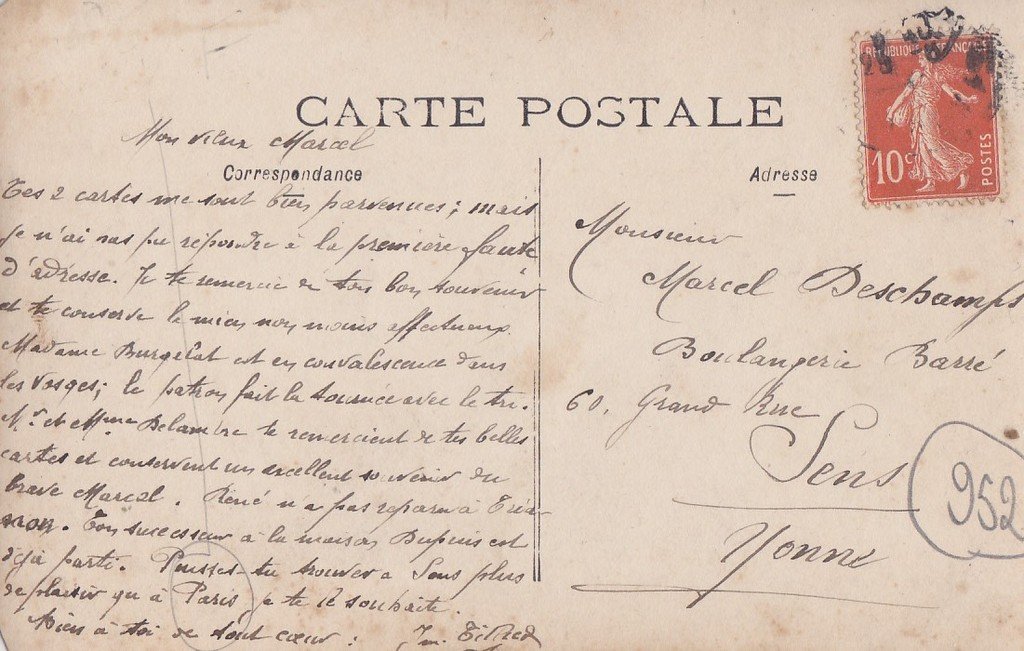 CARTE POSTALE
Mon vieux Marcel
Correspondance
Tes 2 cartes me sont bien parvenues ; mais
je n'ai pas pu répondre à la première faute
d'adresse. Je te remercie de ton bon souvenir
et te conserve le mien non moins affectueux.
Madame Burgelat est en convalescence dans
les Vosges ; le patron fait la tournée avec le tri.
Mr et Mme Delambre te remercient de tes belles
cartes et conservent un excellent souvenir du
brave Marcel. René n'a pas reparu à Tria-
non. Ton successeur à la maison Dupuis est
déjà parti. Puisses-tu trouver à Sens plus
de plaisir qu'à Paris je te le souhaite.
Bien à toi de tout cœur :
Adresse
Monsieur
Marcel Deschamps
Boulangerie Barré
60, Grand Rue
Sens
Yonne
952
REPUBLIQUE FRANÇAISE
10c
POSTES